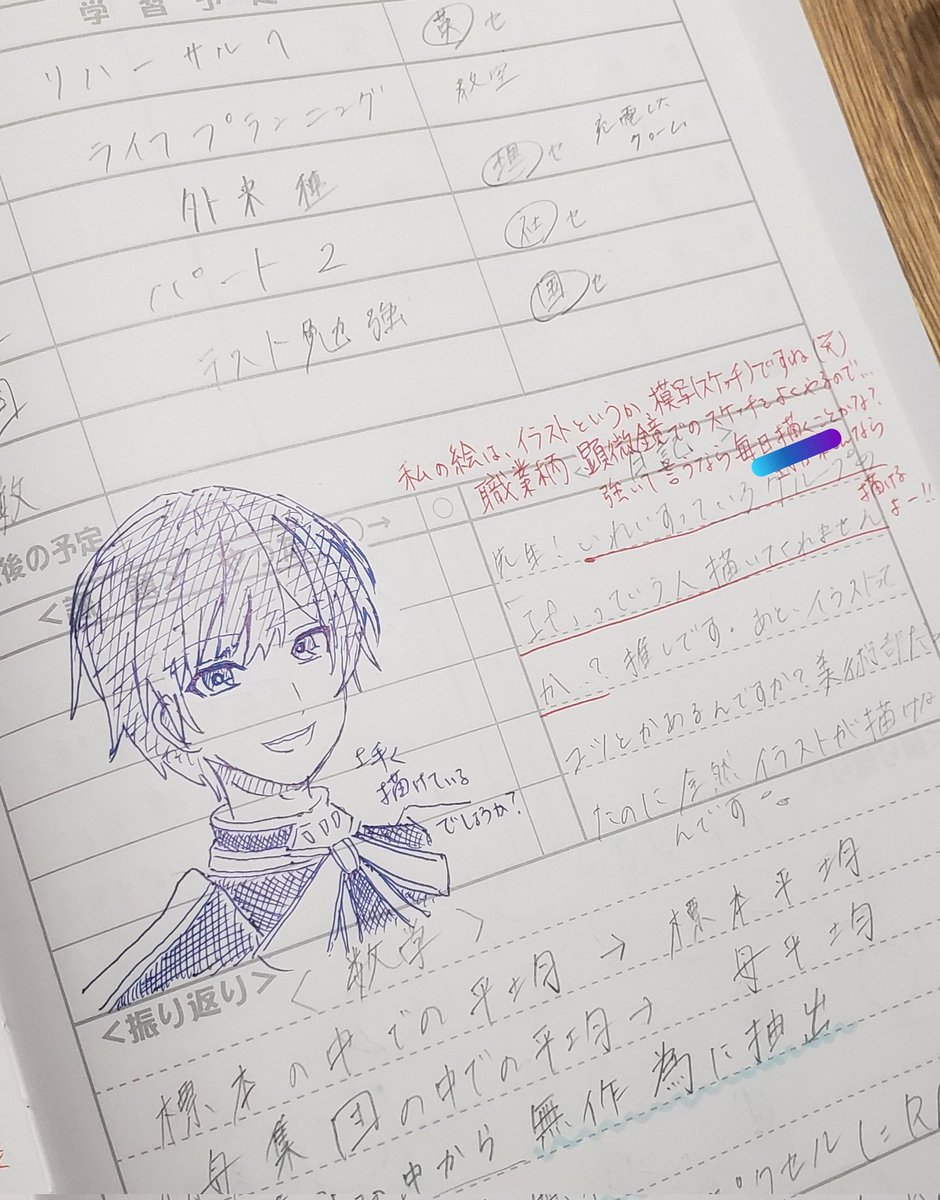 学習予定
リハーサル1
英セ
ライフプランニング
教室
外来種
理セ
充電した
クローム
パート2
社セ
テスト勉強
国セ
私の絵は、イラストというか、模写(スケッチ)ですね(笑)
職業柄、顕微鏡でのスケッチをよくやるので…
強いて言うなら毎日描くことかな?
なら
描ける
よー!!
後の予定
○→
○
先生!いれいすっている グループの
っていう人描いてくれません
か…?推しです。あと、イラストって
コツとかあるんですか?美術部だっ
たのに全然イラストが描けな
んです
上手く
描けている
でしょうか?
<振り返り>
<数学>
標本の中での平均→標本平均
母集団の中での平均→母平均
中から無作為に抽出
クセル(=R